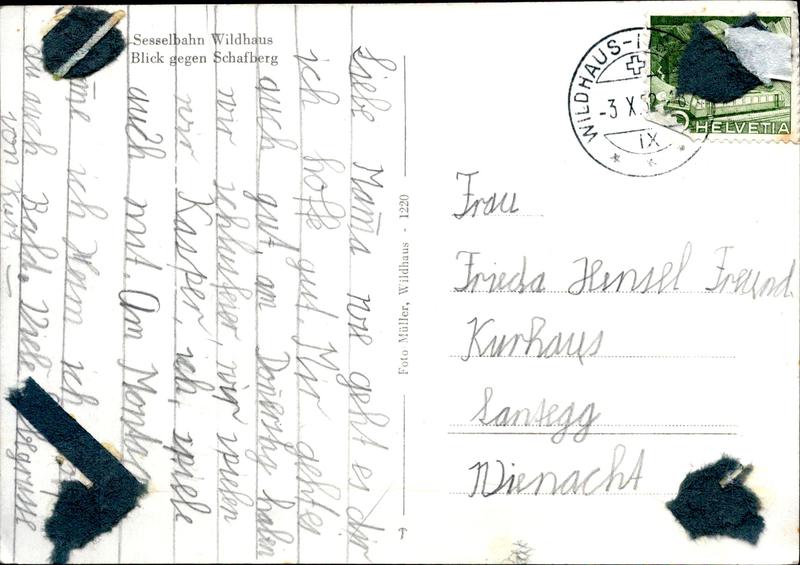 Sesselbahn Wildhaus
Blick gegen Schafberg
Liebe Mama wie geht es dir
ich hoffe gut. Mir geht es
auch gut, am Donerstg haben
wir schlusfeier, wir spielen
vor Kasper, ich, spiele
auch mit. Am Montag
ich Heim ich
du auch Bald. Viele
von Kurt
Foto Müller, Wildhaus - 1220
WILDHAUS
-3 X.52
IX
HELVETIA
Frau
Frieda Hensel Freund
Kurhaus
Lansegg
Wienacht